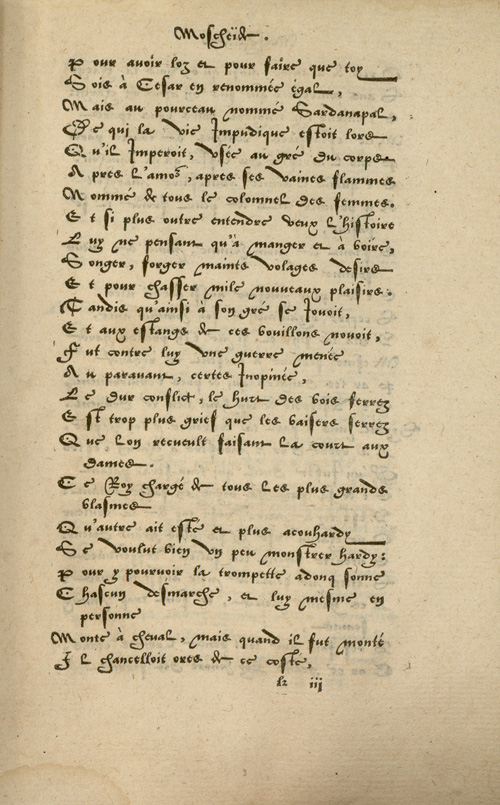 Moscheïde.
Pour avoir loz et pour faire que toy
Sois à Cesar en renommée égal,
Mais au pourceau nommé Sardanapal,
De qui la vie Impudique estoit lors
Qu'il Imperoit, usée au gré du corps
Apres l'amoR, apres ses vaines flammes
Nommé de tous le colomnel des femmes.
Et si plus outre entendre veux l'histoire
Luy ne pensant qu'à manger et à boire,
Songer, forger maints volages desirs
Et pour chasser mile nouveaux plaisirs.
Tandis qu'ainsi à son gré se Jouoit,
Et aux estangs de ces bouillons nouoit,
Fut contre luy une guerre menée
Au paravant, certes Inopinée,
Le dur conflict, le hurt des bois ferrez
Est trop plus grief que les baisers serrez
Que lon recueult faisant la court aux
dames.
Ce Roy chargé de tous les plus grands
blasmes
Qu'autre ait esté et plus acouhardy
Se voulut bien un peu monstrer hardy:
Pour y pourvoir la trompette adonq sonne
Chascun desmarche, et luy mesme en
personne
Monte à cheval, mais quand il fut monté
Il chancelloit ores de ce costé,
iii